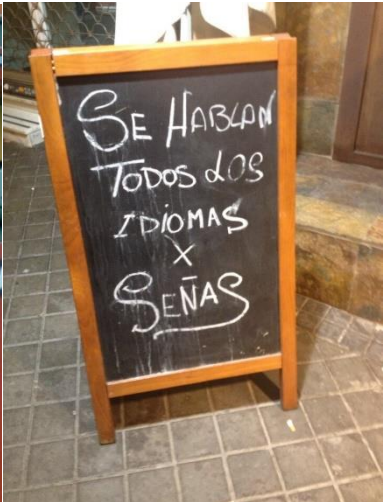 SE HABLAN
TODOS LOS
IDIOMAS
X
SEÑAS